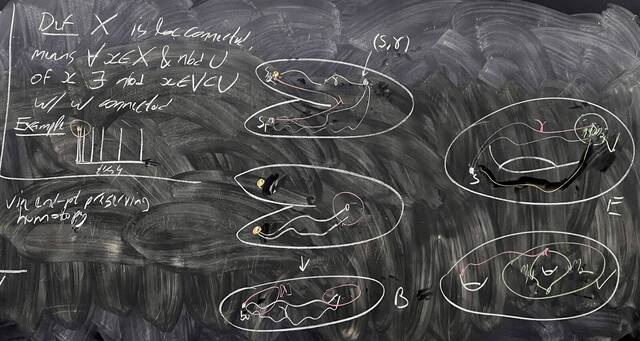 Def X is loc connected
means ∀ x∈X & nbd U
of x ∃ nbd x∈V⊂U
w/ w connected
Example
via end-pt preserving
homotopy
(s,γ)
γ
s
V
E
B
V